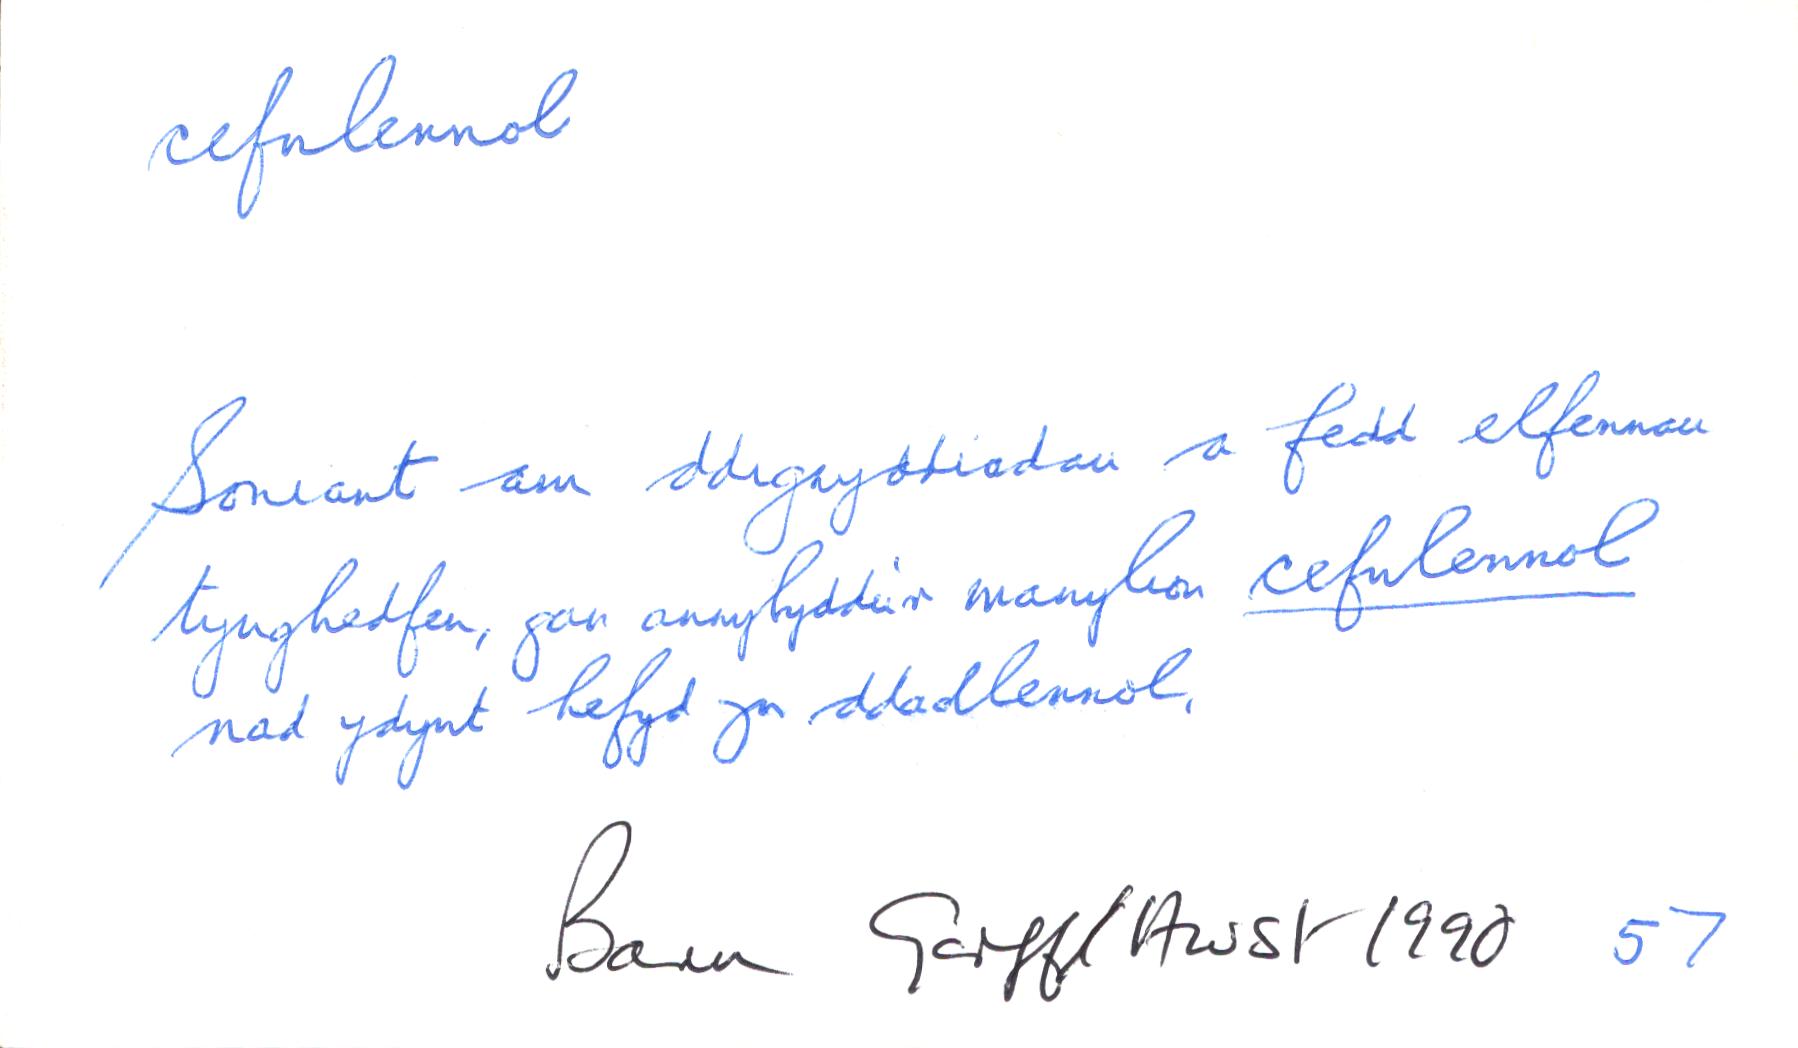 cefnlennol
Soniant am ddigwyddiadau a fedd elfennau
tynghedfen, gan ddefnyddio'r manylion cefnlennol
nad ydynt hefyd yn ddadlennol.
Barn Gorff/Awst 1990 57